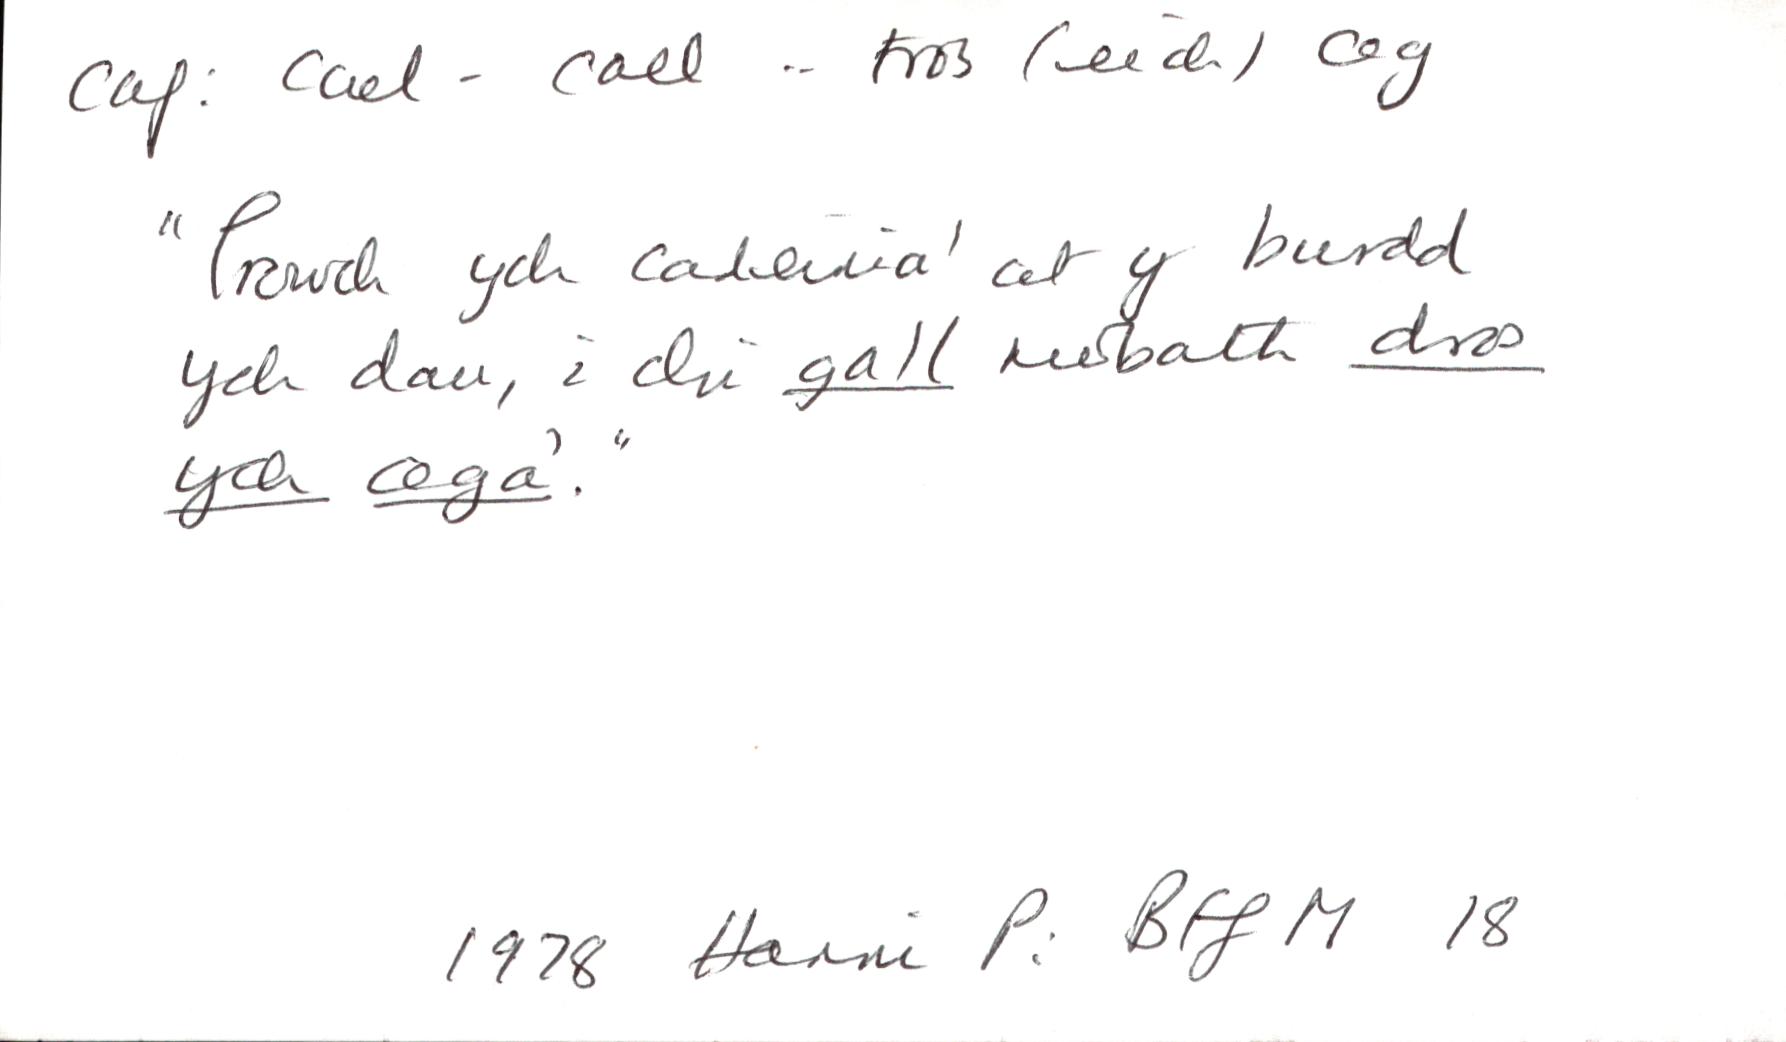 caf: cael - call .. tros (eich) ceg
"Trowch ych cadeiria' at y burdd
ych dau, i chi gall rwbath dros
ych cega'."
1978 Harri P: BFfM 18